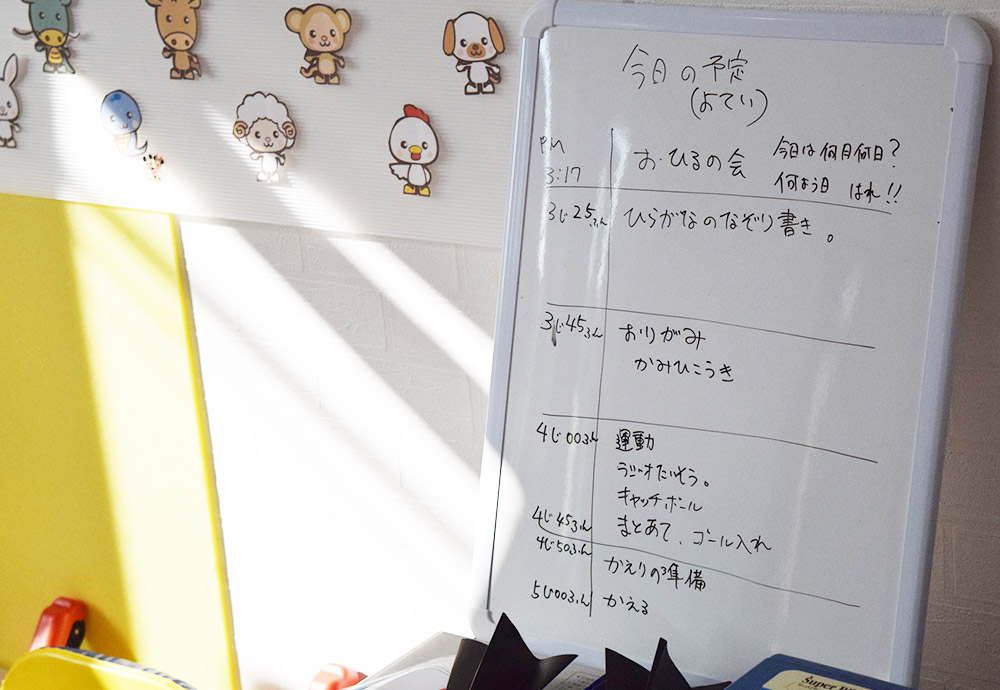 今日の予定
(よてい)
PM
3:17
お・ひるの会
今日は何月何日?
何よう日 はれ!!
3じ25ふん ひらがなのなぞり書き。
3じ45ふん おりがみ
かみひこうき
4じ00ふん 運動
ラジオたいそう。
キャッチボール
4じ45ふん まとあて、ゴール入れ
4じ50ふん かえりの準備
5じ00ふん かえる
Super